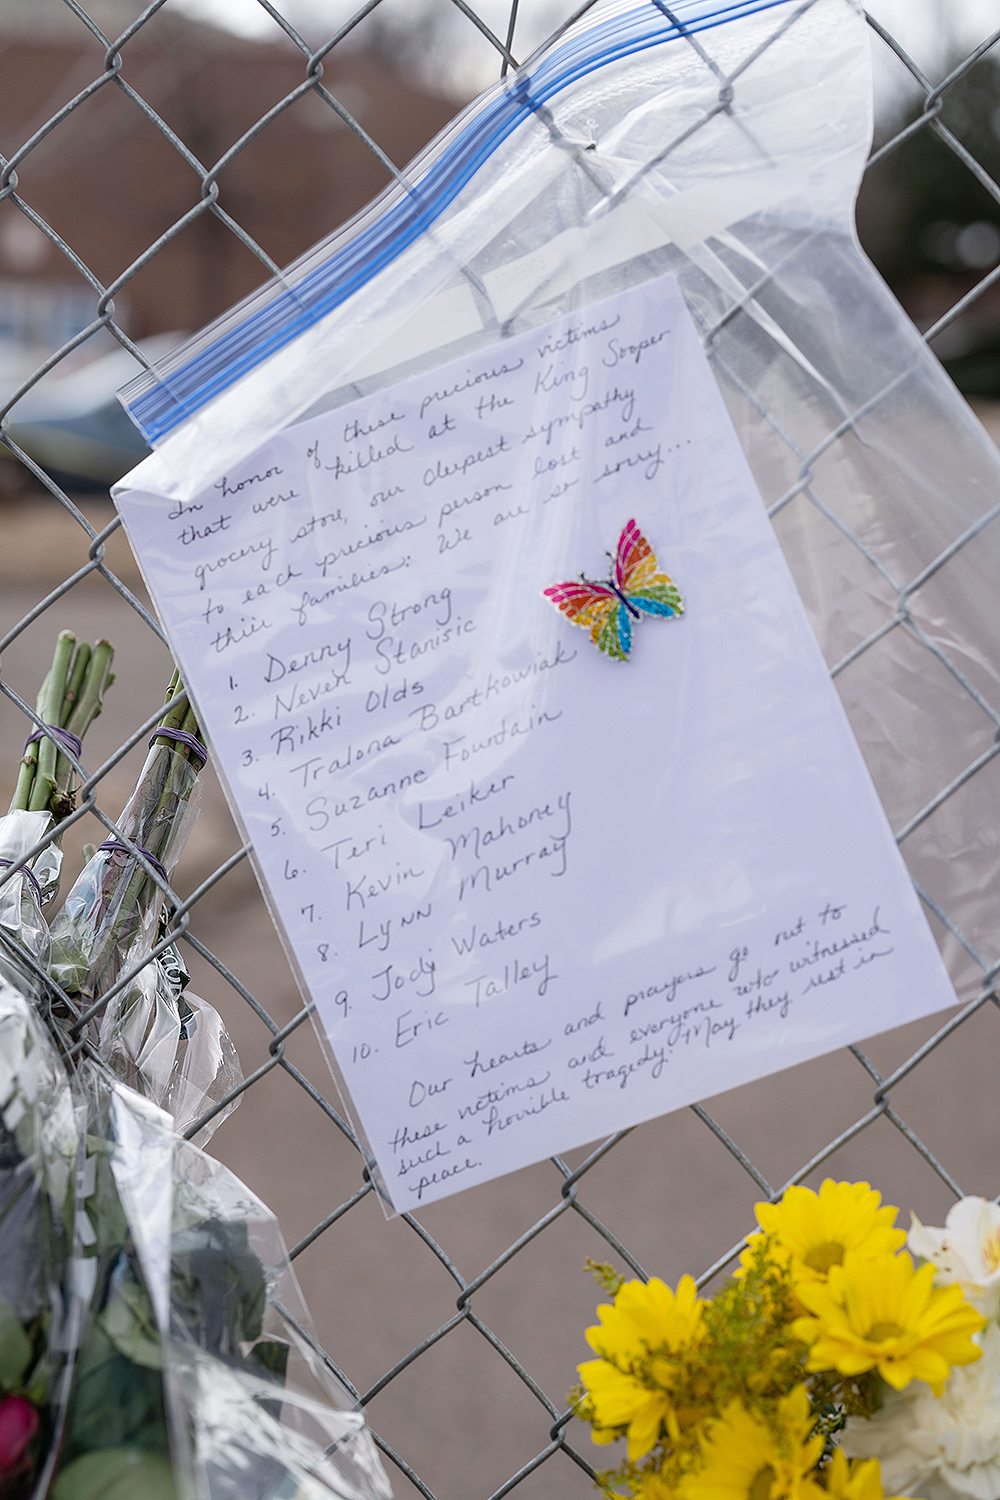 In honor of these precious victims
that were killed at the King Sooper
grocery store, our deepest sympathy
to each precious person lost and
their families: We are so sorry...
1. Denny Strong
2. Neven Stanisic
3. Rikki Olds
4. Tralona Bartkowiak
5. Suzanne Fountain
6. Teri Leiker
7. Kevin Mahoney
8. Lynn Murray
9. Jody Waters
10. Eric Talley
Our hearts and prayers go out to
these victims and everyone who witnessed
such a horrible tragedy. May they rest in
peace.